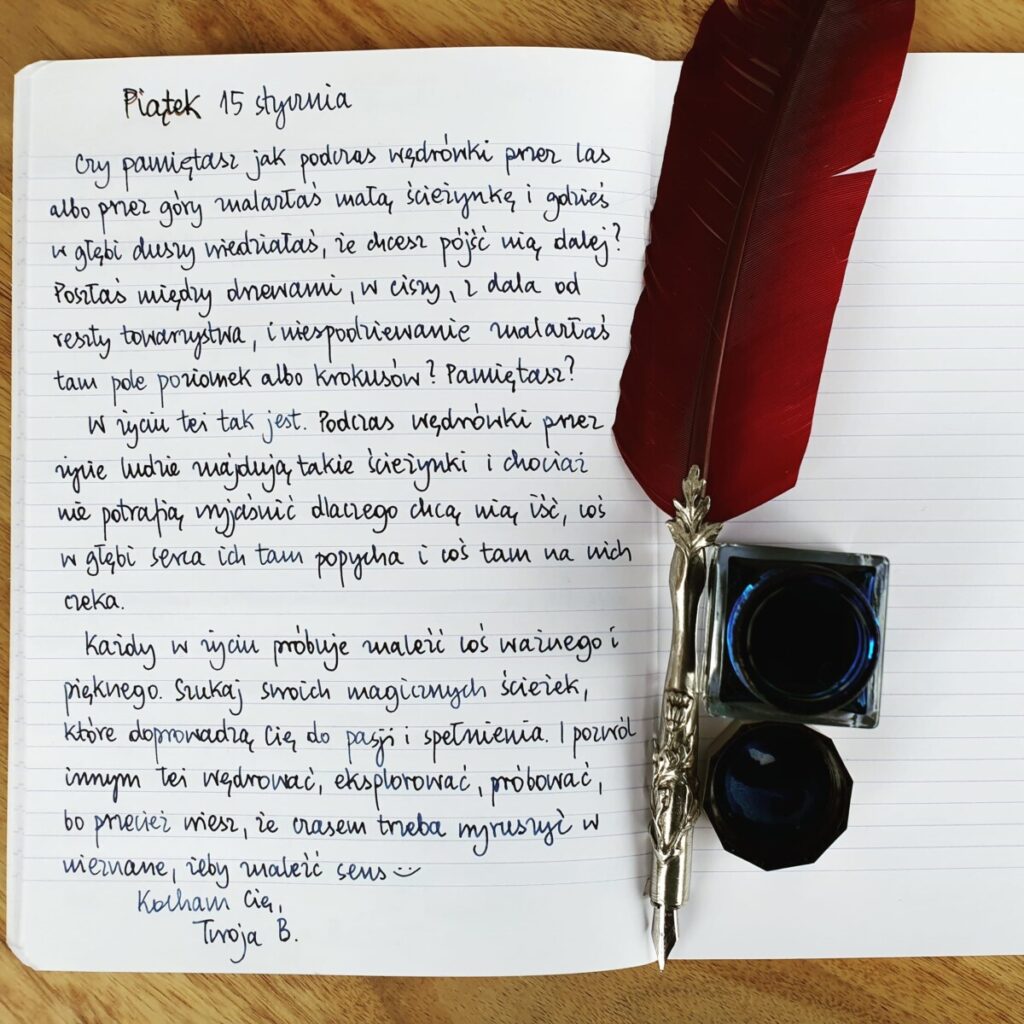 Piątek 15 stycznia
Czy pamiętasz jak podczas wędrówki przez las
albo przez góry znalazłaś małą ścieżynkę i gdzieś
w głębi duszy wiedziałaś, że chcesz pójść nią dalej?
Poszłaś między drzewami, w ciszy, z dala od
reszty towarzystwa, i niespodziewanie znalazłaś
tam pole poziomek albo krokusów? Pamiętasz?
W życiu też tak jest. Podczas wędrówki przez
życie ludzie znajdują takie ścieżynki i chociaż
nie potrafią wyjaśnić dlaczego chcą nią iść, coś
w głębi serca ich tam popycha i coś tam na nich
czeka.
Każdy w życiu próbuje znaleźć coś ważnego i
pięknego. Szukaj swoich magicznych ścieżek,
które doprowadzą Cię do pasji i spełnienia. I pozwól
innym też wędrować, eksplorować, próbować,
bo przecież wiesz, że czasem trzeba wyruszyć w
nieznane, żeby znaleźć sens
Kocham Cię,
Twoja B.